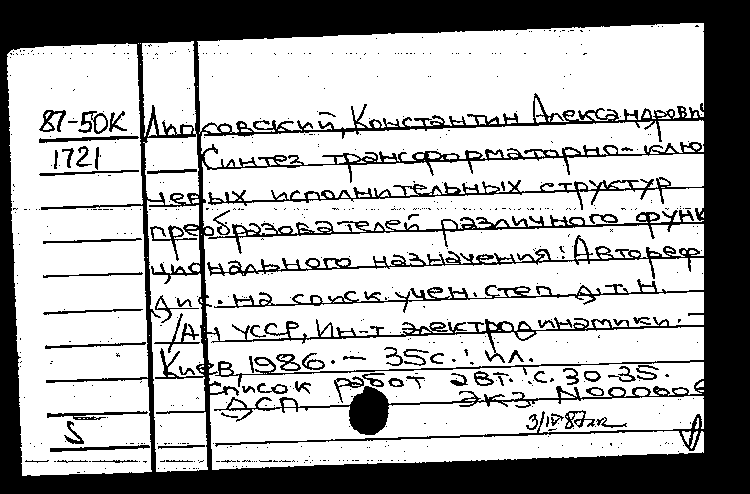 87-50К Липковский, Константин Александрович
1721 Синтез трансформаторно-клю-
чевых исполнительных структур
преобразователей различного функ-
ционального назначения: Автореф.
дис. на соиск. учен. степ. д.т.н.
/АН УССР, Ин-т электродинамики. –
Киев, 1986. – 35с.: ил.
Список работ авт.: с. 30-35.
ДСП. Экз. N000006
3/IV 87